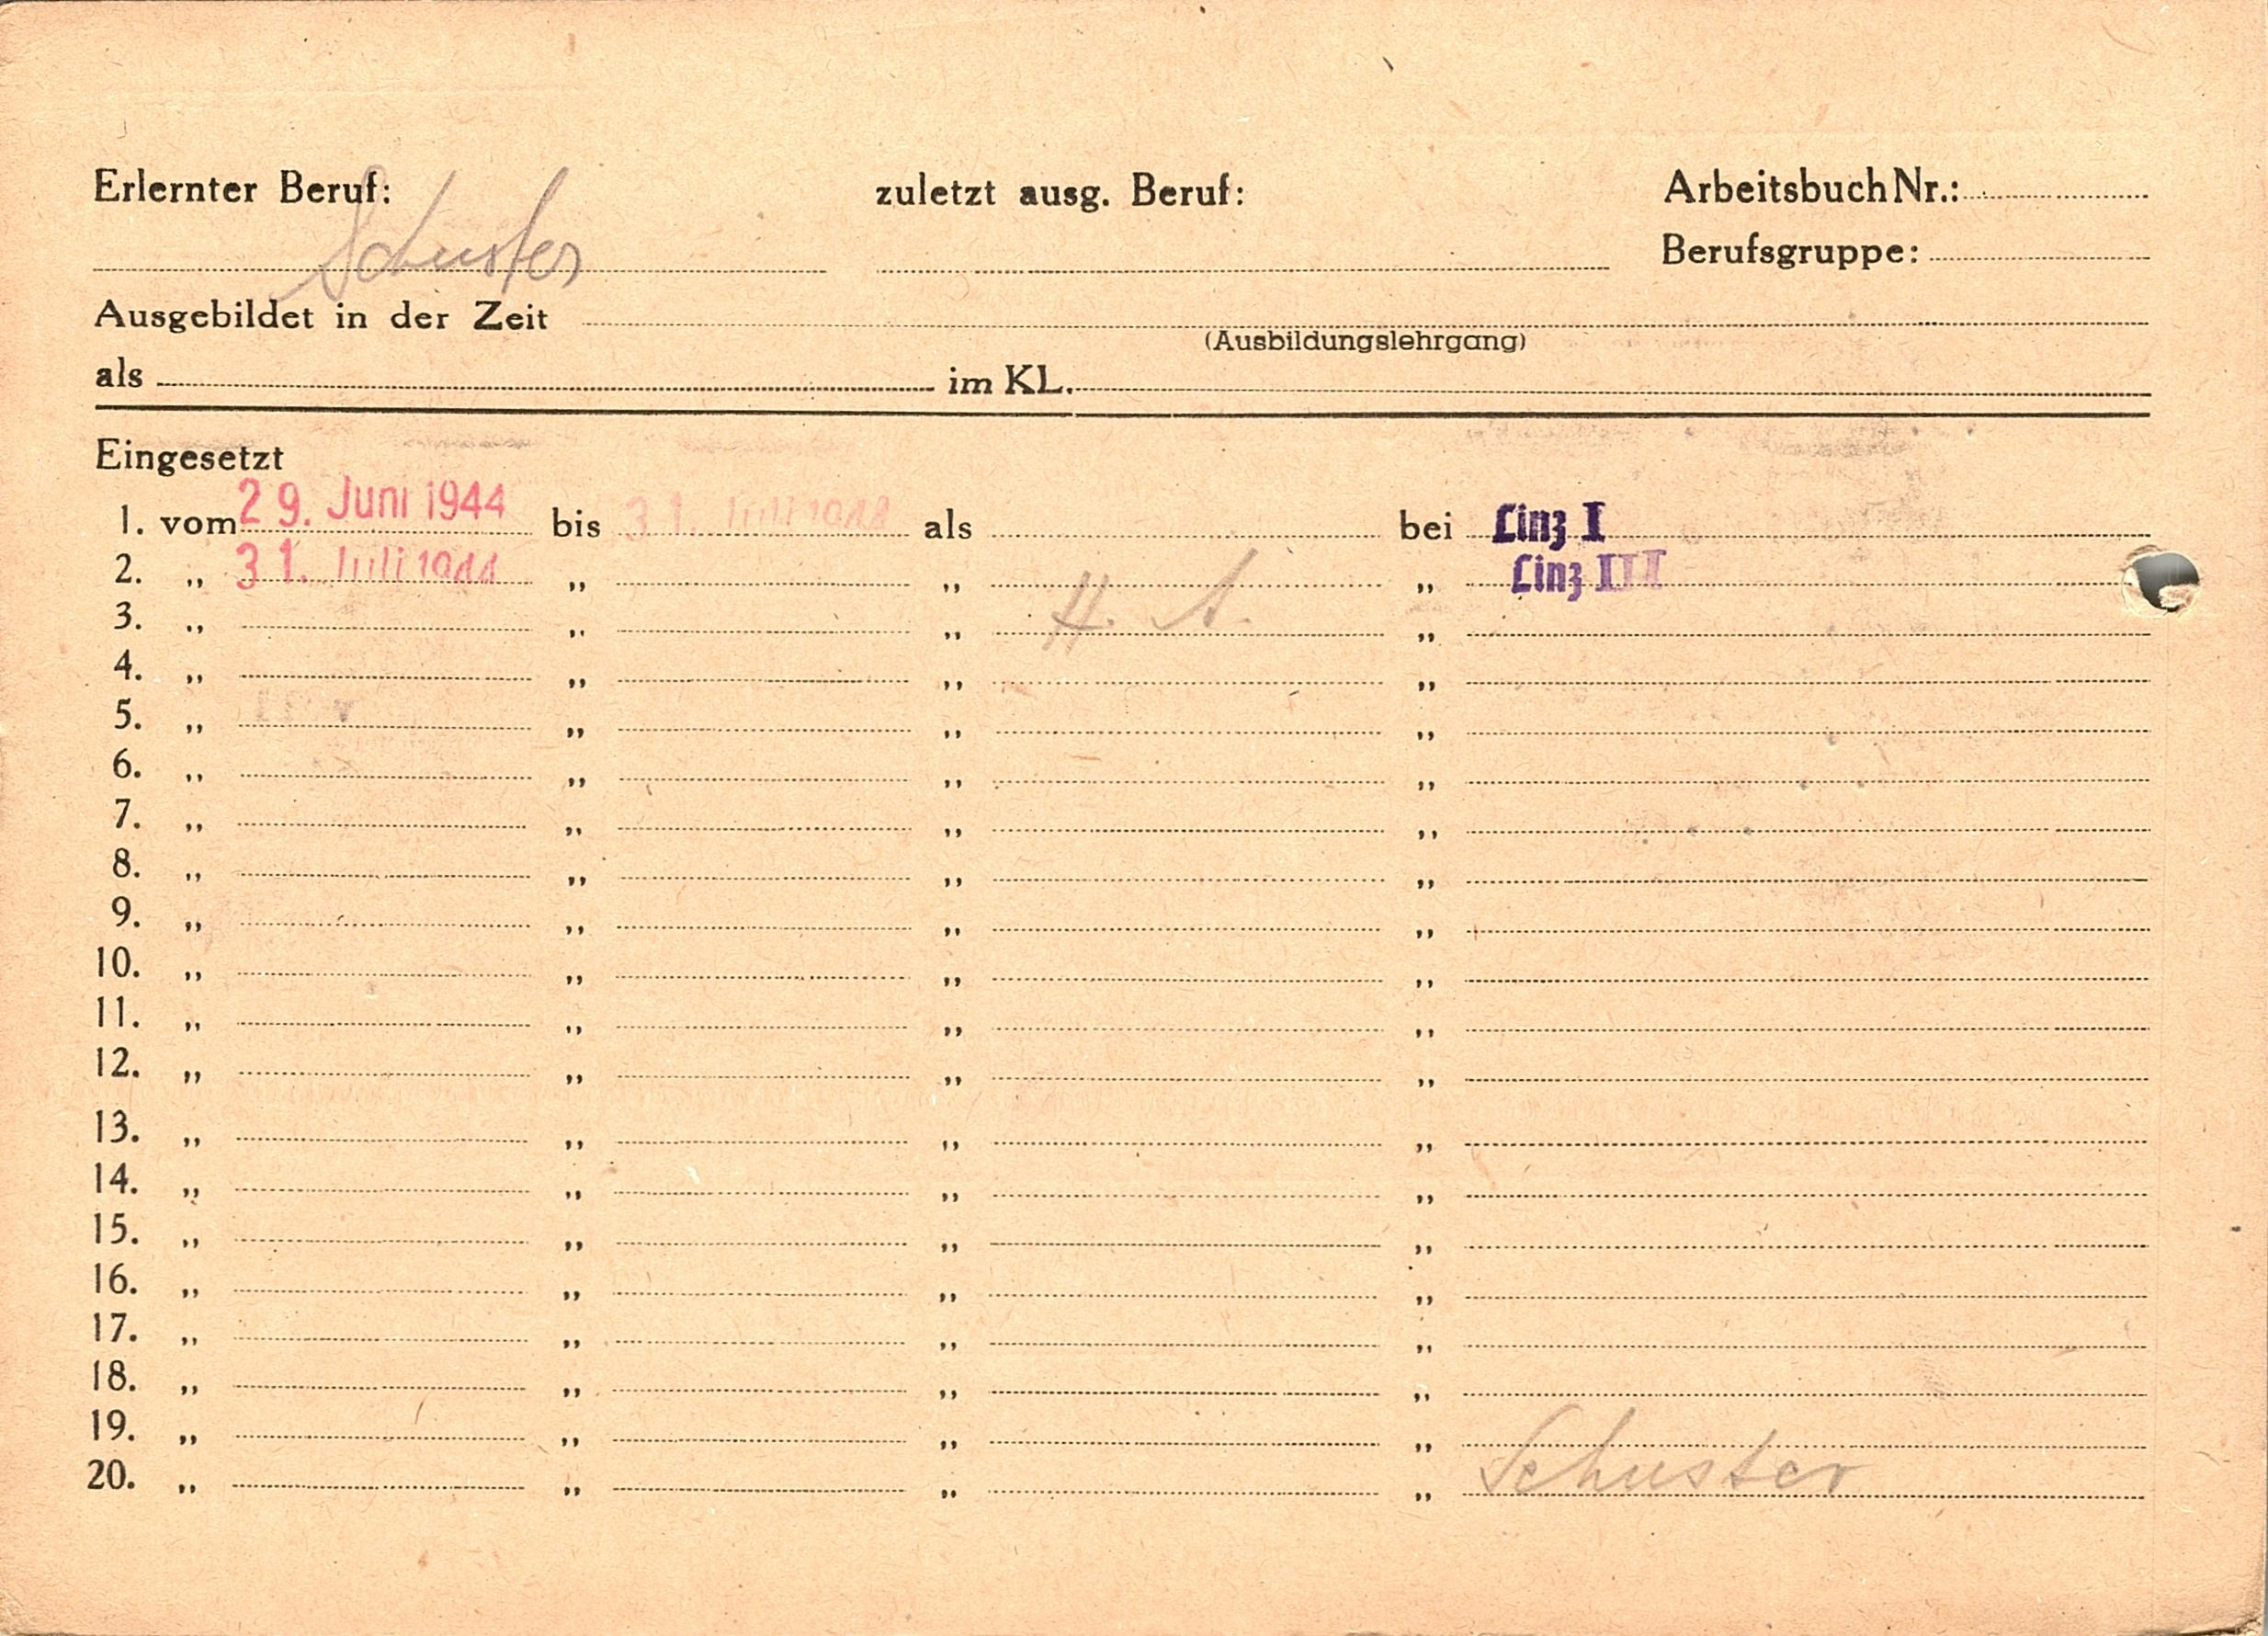 Erlernter Beruf: zuletzt ausg. Beruf: Arbeitsbuch Nr.:
Schuster Berufsgruppe:
Ausgebildet in der Zeit
(Ausbildungslehrgang)
als im KL.
Eingesetzt
1. vom 29. Juni 1944 bis 31. Juli 1944 als bei Linz I
2. „ 31. Juli 1944 „ „ „ Linz III
3. „ „ „ H. A. „
4. „ „ „ „
5. „ „ „ „
6. „ „ „ „
7. „ „ „ „
8. „ „ „ „
9. „ „ „ „
10. „ „ „ „
11. „ „ „ „
12. „ „ „ „
13. „ „ „ „
14. „ „ „ „
15. „ „ „ „
16. „ „ „ „
17. „ „ „ „
18. „ „ „ „
19. „ „ „ „
20. „ „ „ „ Schuster